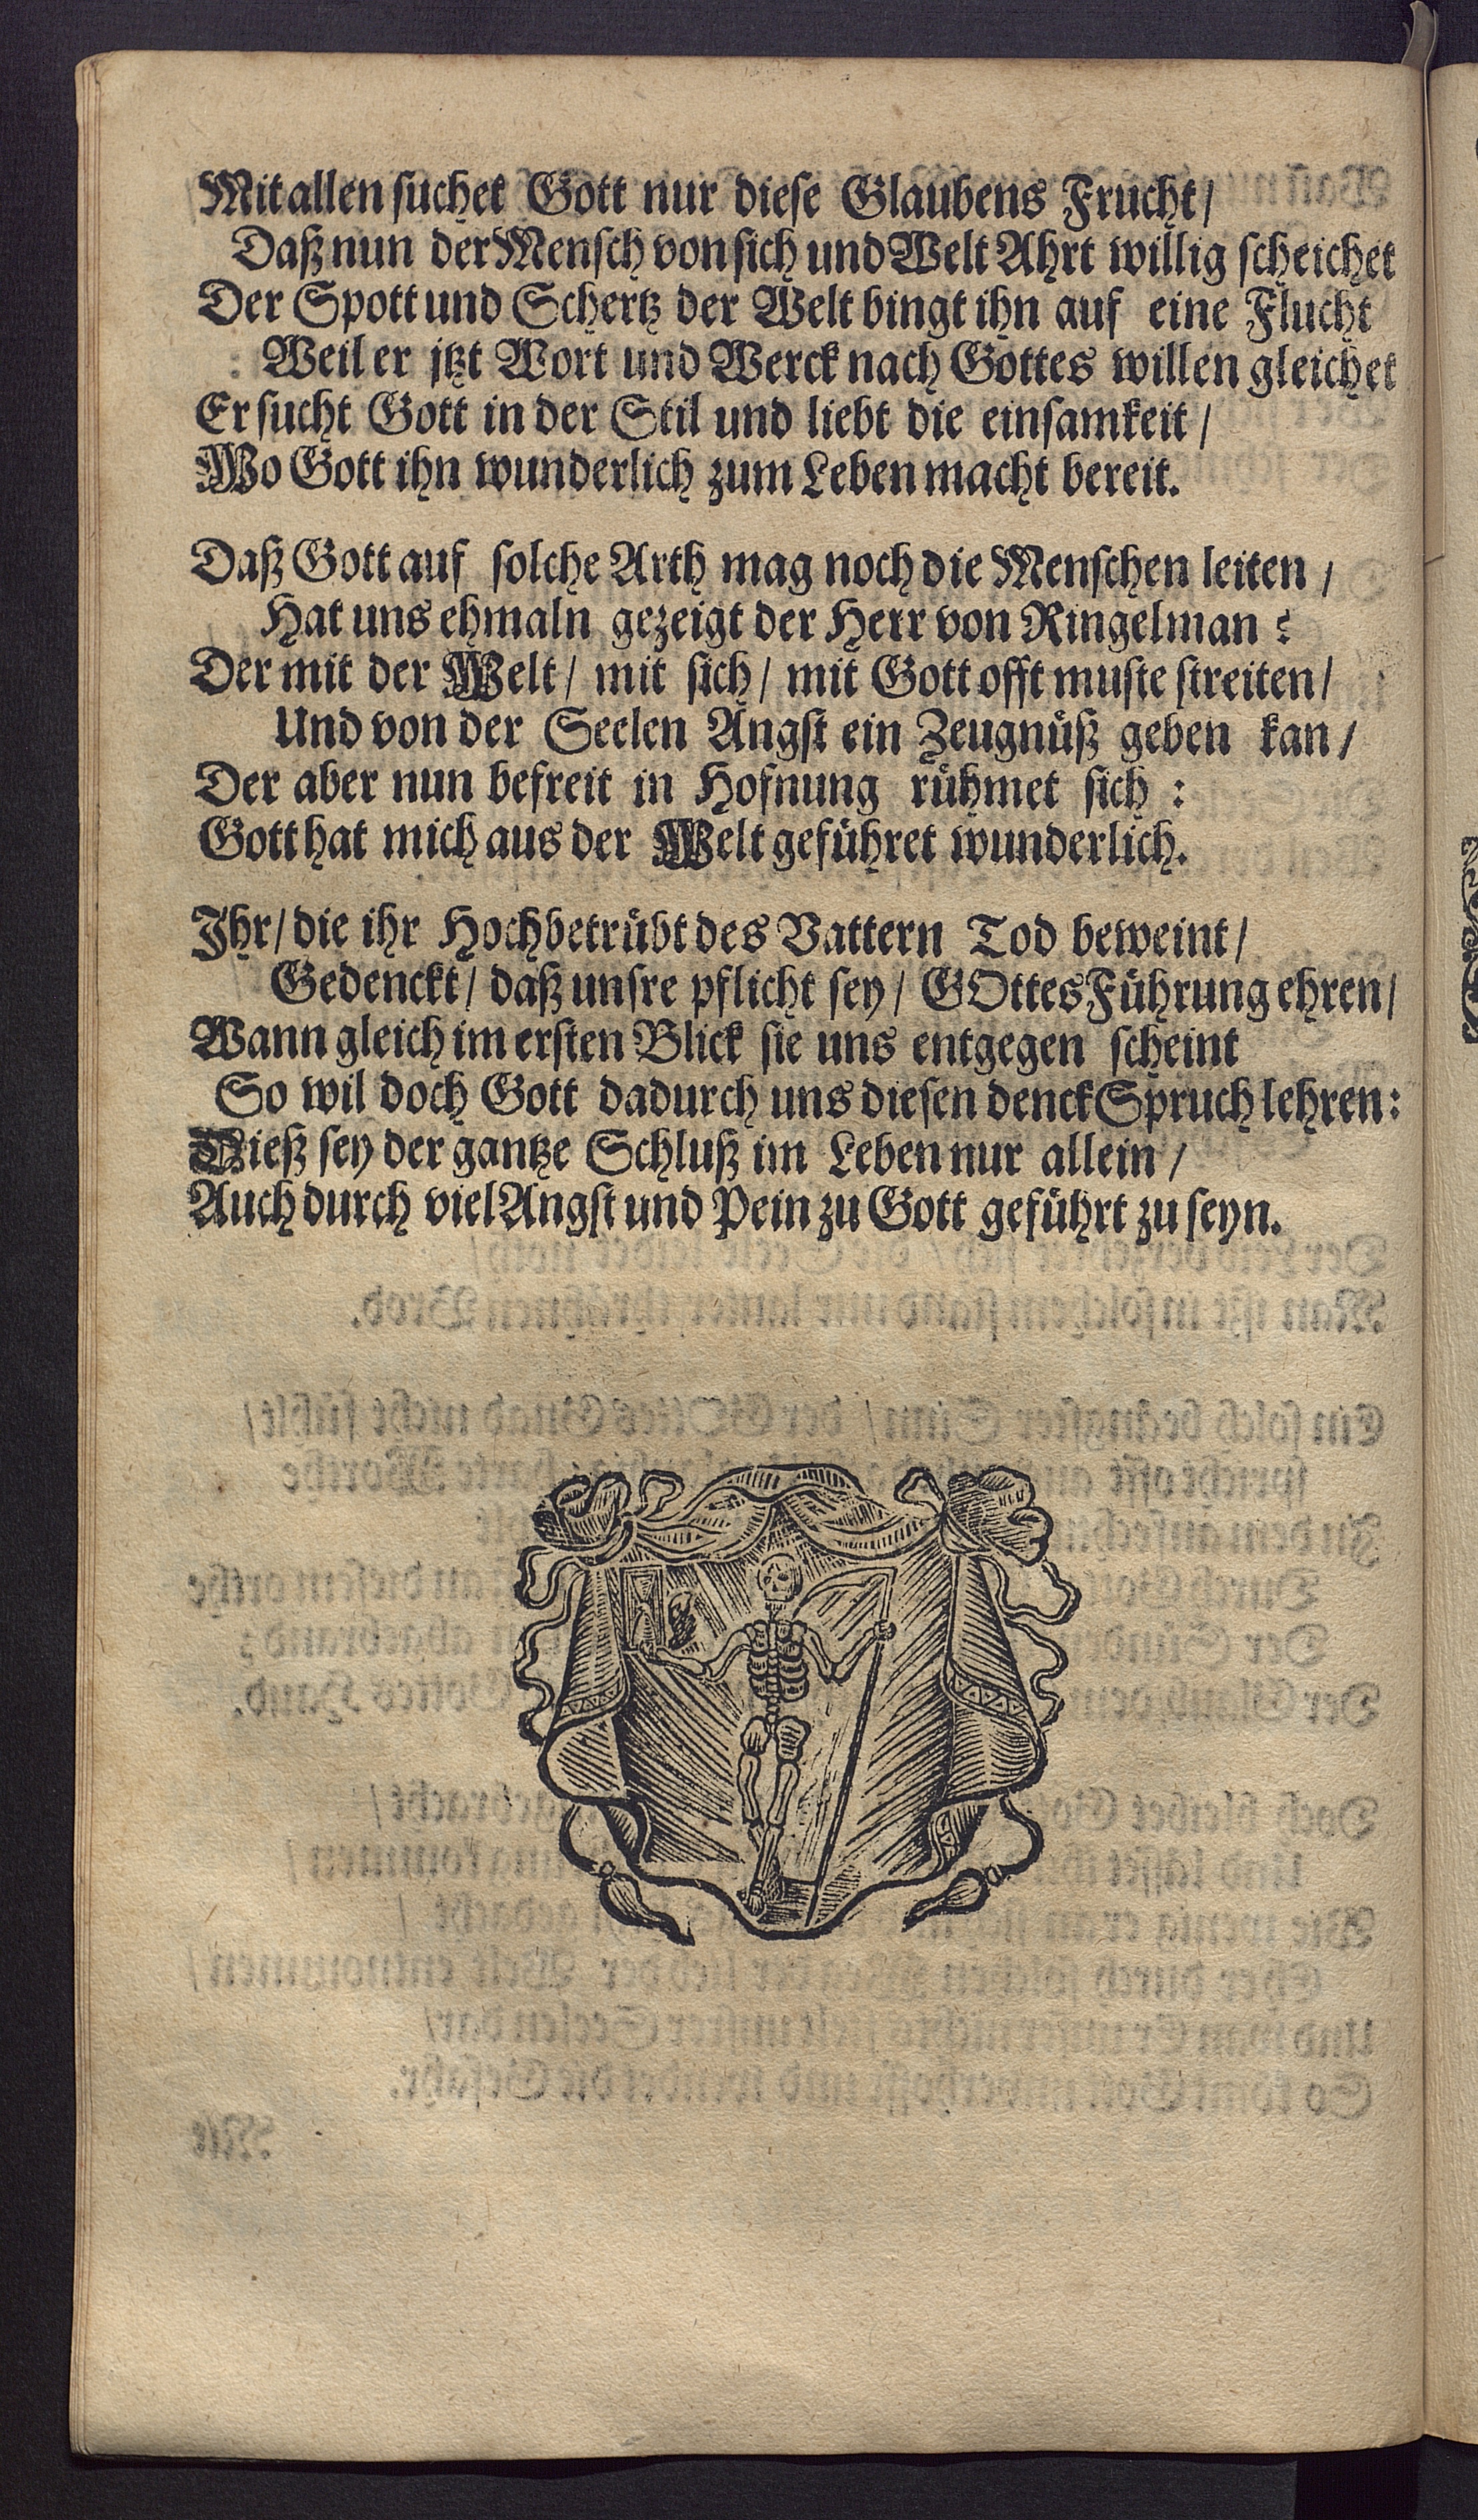 Mit allen suchet Gott nur diese Glaubens Frucht/
Daß nun der Mensch von sich und Welt Ahrt willig scheichet
Der Spott und Schertz der Welt bingt ihn auf eine Flucht
Weil er jtzt Wort und Werck nach Gottes willen gleichet
Er sucht Gott in der Stil und liebt die einsamkeit/
Wo Gott ihn wunderlich zum Leben macht bereit.
Daß Gott auf solche Arth mag noch die Menschen leiten/
Hat uns ehmaln gezeigt der Herr von Ringelman:
Der mit der Welt/ mit sich/ mit Gott offt muste streiten/
Und von der Seelen Angst ein Zeugnüß geben kan/
Der aber nun befreit in Hofnung rühmet sich:
Gott hat mich aus der Welt geführet wunderlich.
Ihr/ die ihr Hochbetrübt des Vattern Tod beweint/
Gedenckt/ daß unsre pflicht sey/ GOttes Führung ehren/
Wann gleich im ersten Blick sie uns entgegen scheint
So wil doch Gott dadurch uns diesen denck Spruch lehren:
Dieß sey der gantze Schluß im Leben nur allein/
Auch durch viel Angst und Pein zu Gott geführt zu seyn.